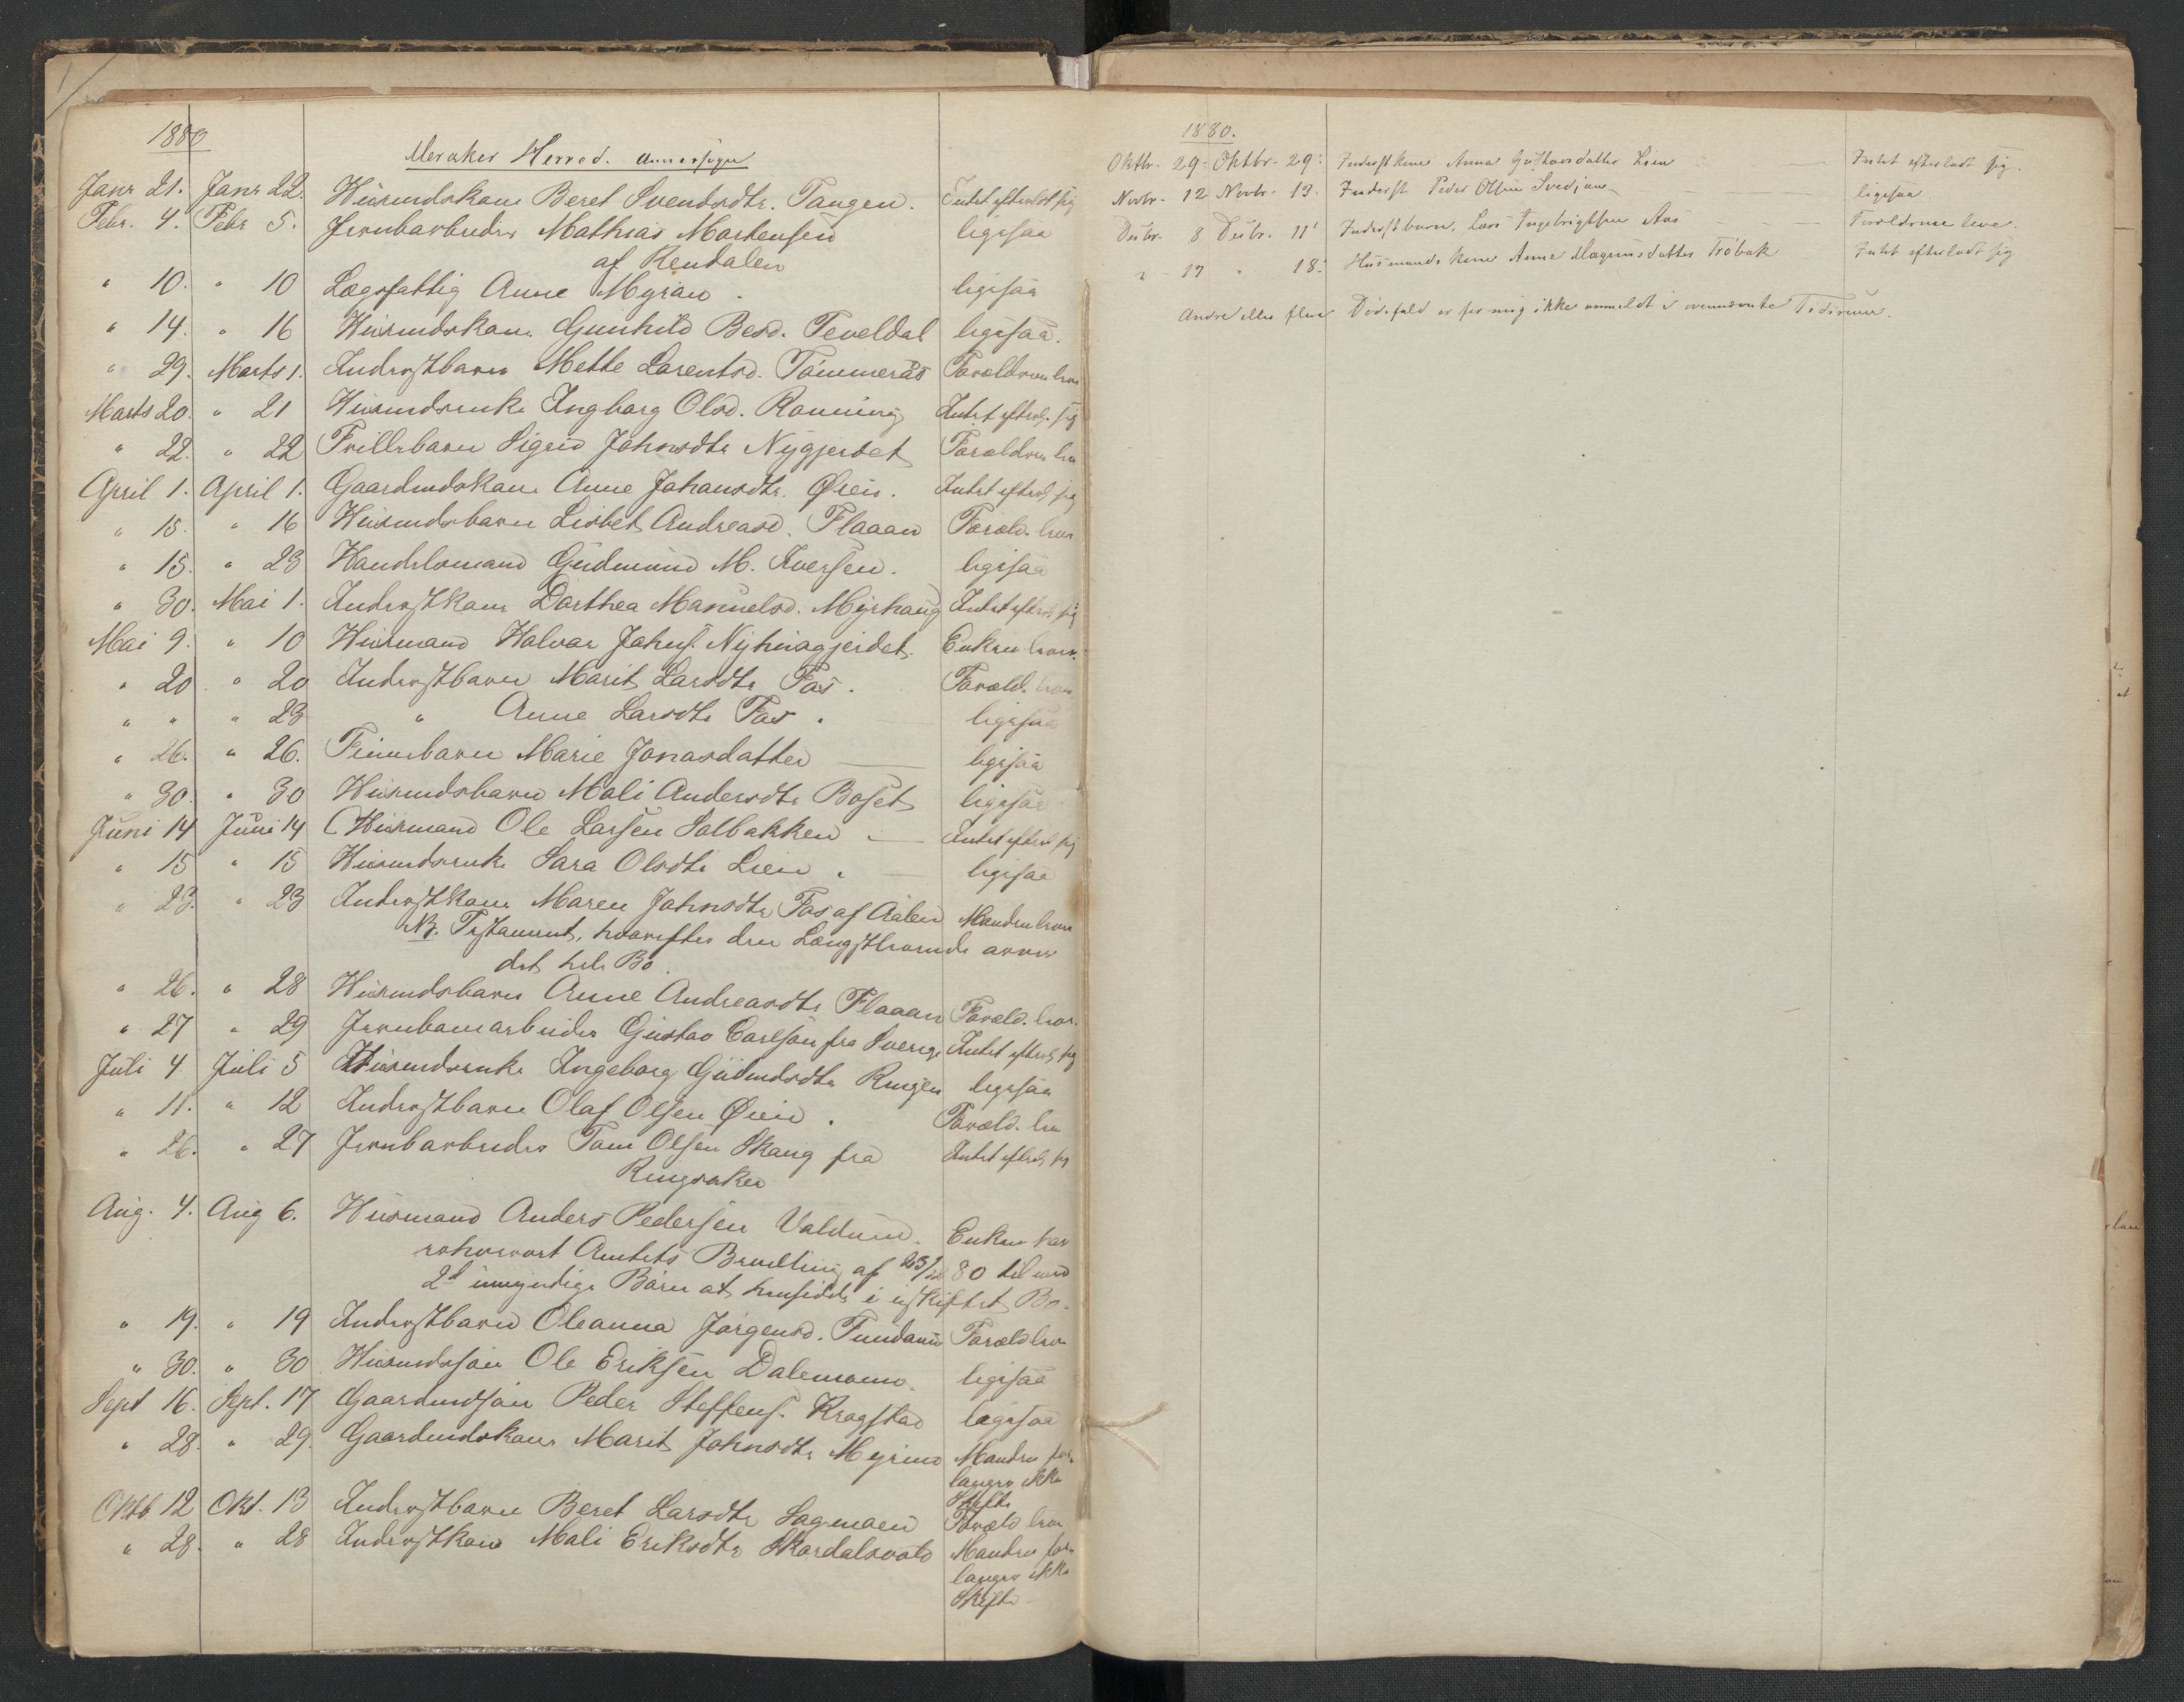 1880
Meraker Herred. Annexsogn
Janr 21. Janr 22. Huusmdskone Beret Svendsdtr. Tangen. Intet efterladt sig
Febr. 4. Febr 5. Jernbarbeider Mathias Mortensen ligesaa
af Rendalen
" 10. " 10 Lægsfattig Anne Myran. ligesaa
" 14. " 16 Huusmdskone Gunhild Besd. Teveldal ligesaa.
" 29. Marts 1. Inderstbarn Mette Larentsd. Tømmeraas Forældrene leve
Marts 20. " 21 Huusmdsenke Ingbarg Olsd. Rønning Intet efterl. sig
" 22. " 22 Frillebarn Sigrid Johnsdtr Nygjerdet Forældrene leve
April 1. April 1. Gaardmdskone Anne Johansdtr. Øien. Intet efterl. sig
" 15. " 16 Huusmdsbarn Lisbet Andreasd. Flaaan Foræld. leve
" 15. " 23 Handelsmand Gudmund M. Iversen. ligesaa
" 30. Mai 1. Inderstkone Dorthea Manuelsd. Myrhaug Intet efterl. sig
Mai 9. " 10 Huusmand Halvor Johns. Nyhuagjerdet. Enken lever.
" 20 " 20 Inderstbarn Marit Larsdtr Fas. Foræld. leve
" " " 23 " Anne Larsdtr Fas. ligesaa
" 26. " 26. Finnebarn Marie Jonasdatter ligesaa
" 30. " 30 Huusmdsbarn Mali Andersdtr Boset ligesaa
Juni 14 Juni 14 Huusmand Ole Larsen Solbakken Intet efterl sig
" 15 " 15 Huusmdsenke Sara Olsdtr Lien. ligesaa
" 23. " 23 Inderstkone Maren Johnsdtr Fas af Aalen Manden lever
NB. Testament, hvorefter den Længstlevende arver
det hele Bo.
" 26. " 28 Huusmdsbarn Anne Andreasdtr Flaaan Foræld. leve.
" 27 " 29 Jernbanearbeider Gustav Carlson fra Sverige Intet efterl. sig
Juli 4 Juli 5 Huusmdsenke Ingeborg Gudmdsdtr Ringen ligesaa
" 11. " 12 Inderstbarn Olaf Olsen Øien. Foræld. leve
" 26. " 27 Jernbarbeider Tom Olsen Skaug fra Intet efterl. sig
Ringsaker
Aug. 4. Aug 6. Huusmand Anders Pedersen Valdum. Enken har
erhvervet Amtets Bevilling af 80 til med
2d umyndige Børn at hensidde i uskiftet Bo.
" 19. " 19 Inderstbarn Oleanna Jørgensd. Fundaun Foræld leve
" 30. " 30 Huusmdssøn Ole Eriksen Dalemomo. ligesaa
Sept 16. Sept. 17 Gaardmdsøn Peder Steffens. Kragstad ligesaa
" 28. " 29. Gaardmdskone Marit Johnsdtr Myrmo Manden for-
langer ikke
Skifte
Oktb 12 Okt. 13 Inderstbarn Beret Larsdtr Sagmoen Foræld leve
" 28. " 28 Inderstkone Mali Eriksdtr Skordalsvold Manden for-
langer ikke
Skifte
1880.
Oktbr. 29. Oktbr. 29. Inderstkone Anna Gustavsdatter Lien Intet efterladt sig.
Novbr. 12 Novbr. 13. Inderst Peder Olsen Svedjan ligesaa
Decbr. 8 Decbr. 11 Inderstbarn, Lars Ingebrigtsen Aas Forældrene leve.
" 17 " 18. Husmands kone Anne Magnusdatter Trøbak Intet efterladt sig
Andre eller flere Dødsfald er for mig ikke anmeldt i ovennævnte Tidsrum.